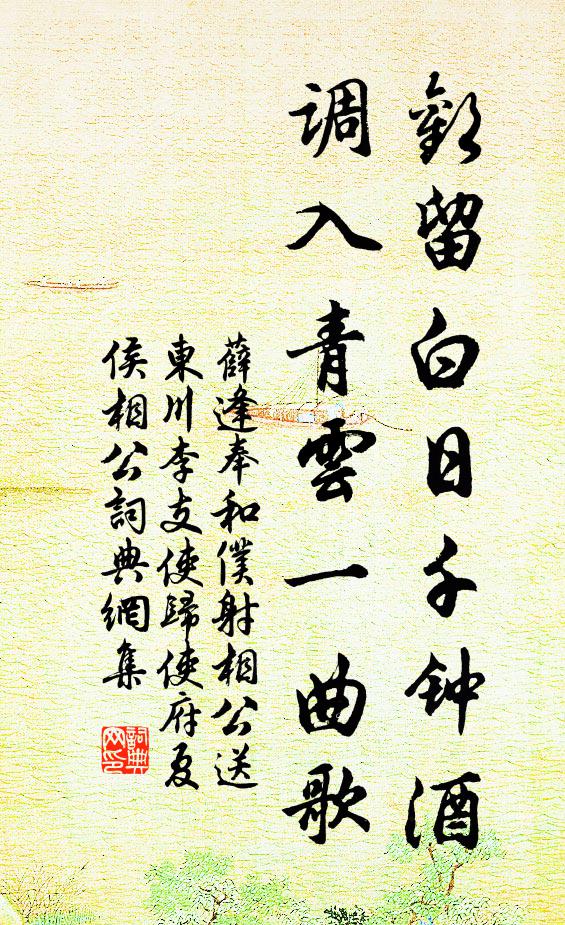 歡留白日千钟酒
调入青雲一曲歌
薛逢奉和僕射相公送
東川李支使歸使府夏
侯相公詞典網集
詞典
网印